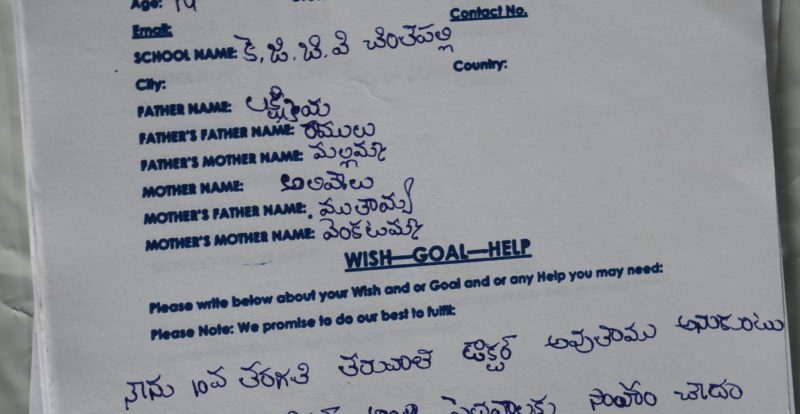 Age: 14
Contact No.
Email:
SCHOOL NAME: కె, జి. బి. వి చింతపల్లి
City: Country:
FATHER NAME: లక్ష్మయ్య
FATHER'S FATHER NAME: రాములు
FATHER'S MOTHER NAME: మల్లమ్మ
MOTHER NAME: అలివేలు
MOTHER'S FATHER NAME: ముతాయ్య
MOTHER'S MOTHER NAME: వెంకటమ్మ
WISH—GOAL—HELP
Please write below about your Wish and or Goal and or any Help you may need:
Please Note: We promise to do our best to fulfil:
నాను 10వ తరగతి తరువాత డాక్టర్ అవుతాము అనుకుంటు
పెదవాలకు సాహం చాదాం